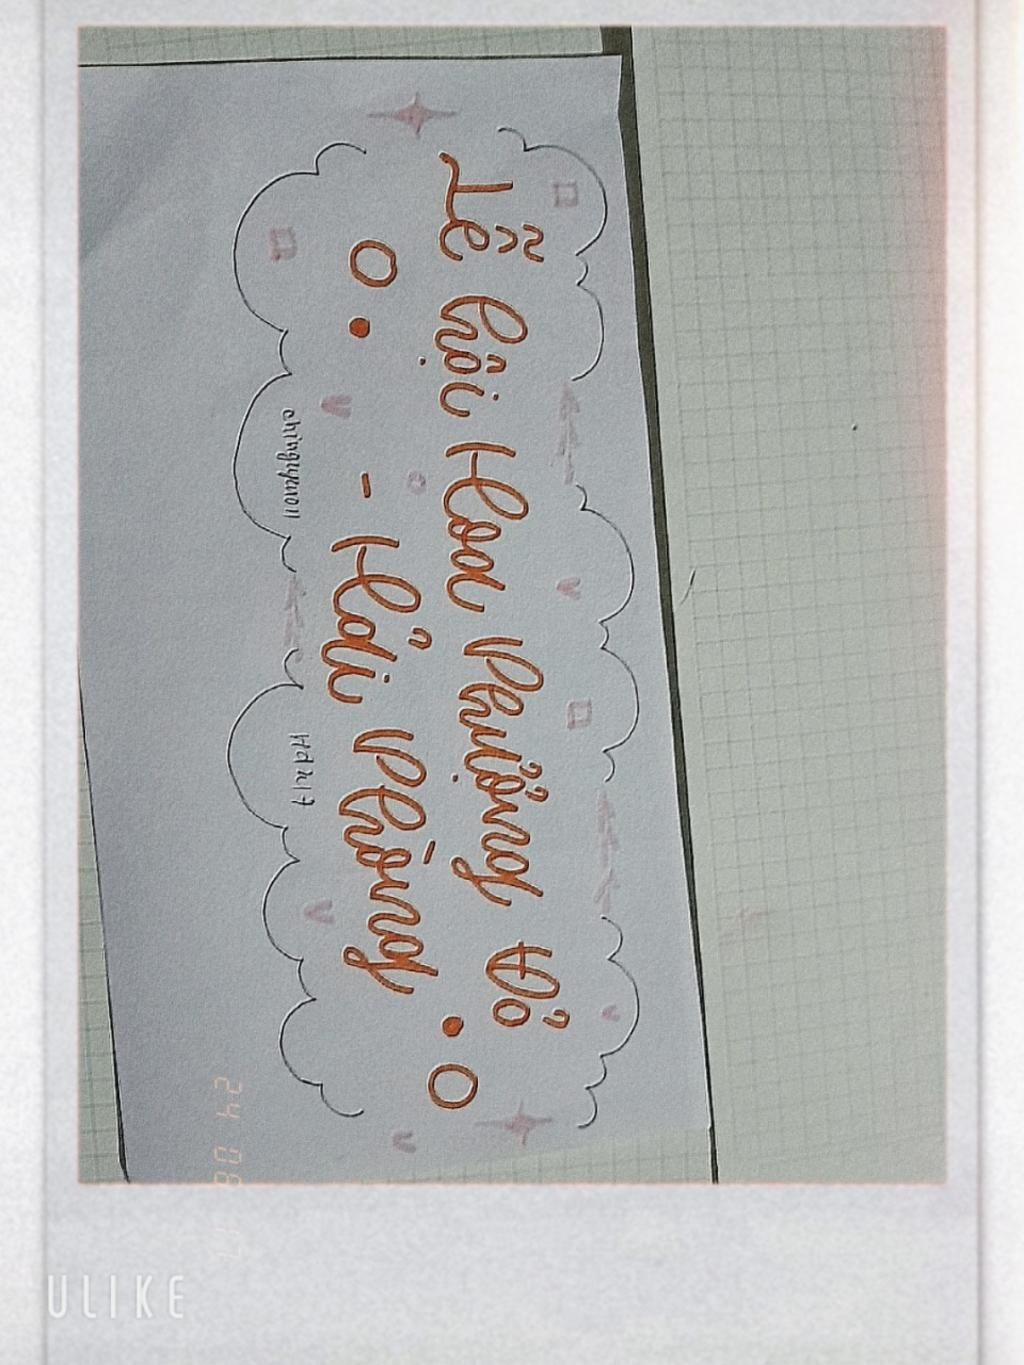 Lễ hội Hoa Phượng Đỏ
- Hải Phòng
chinguyen011
24 08
ULIKE